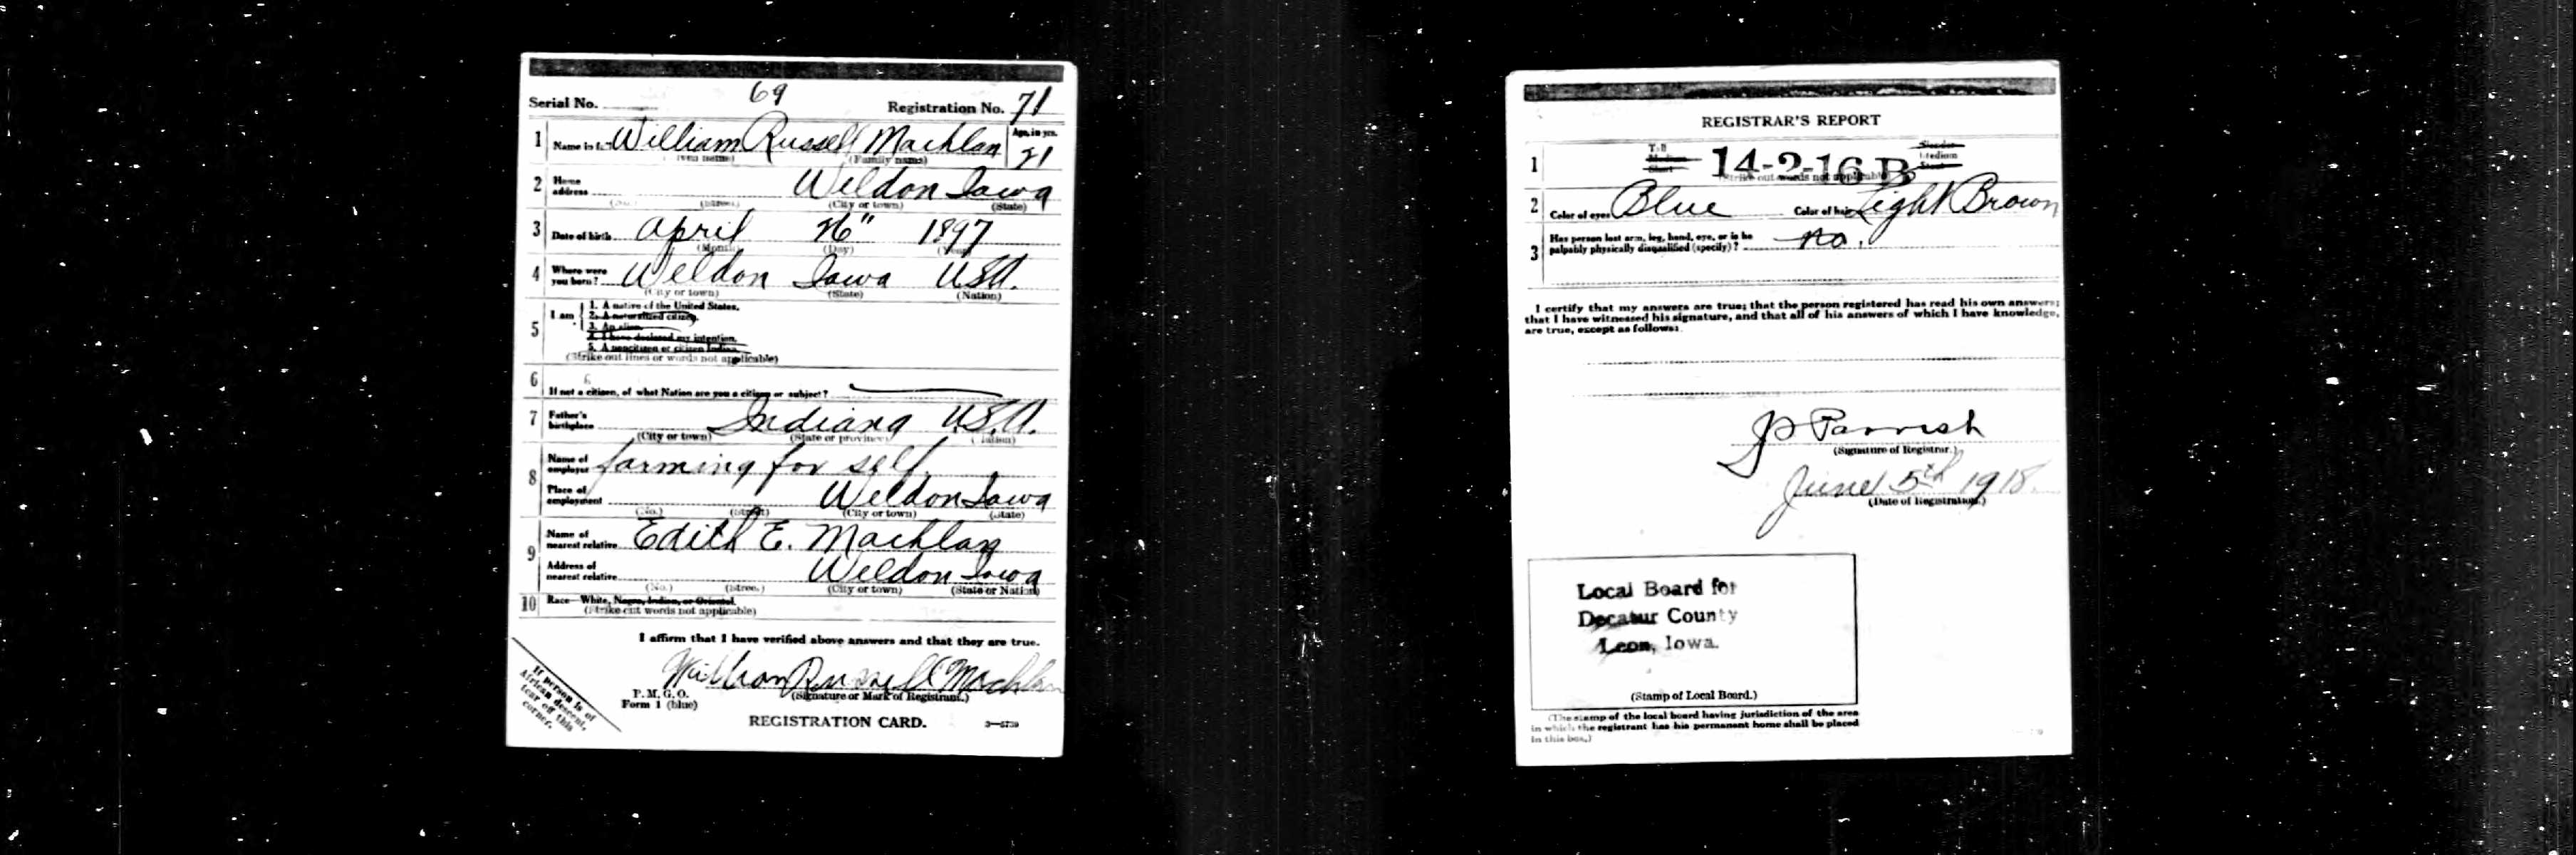 Serial No. 69 Registration No. 71
1 Name in f. William Russell Machlan Age, in yrs. 21
(Given name) (Family name)
2 Home address Weldon Iowa
(No.) (Street) (City or town) (State)
3 Date of birth April 26" 1897
(Month) (Day) (Year)
4 Where were you born? Weldon Iowa U.S.A.
(City or town) (State) (Nation)
5 I am
1. A native of the United States.
2. A naturalized citizen.
3. An alien.
4. I have declared my intention.
5. A noncitizen or citizen Indian.
(Strike out lines or words not applicable)
6 If not a citizen, of what Nation are you a citizen or subject?
7 Father's birthplace Indiana U.S.A.
(City or town) (State or province) (Nation)
8 Name of employer farming for self.
Place of employment Weldon Iowa
(No.) (Street) (City or town) (State)
9 Name of nearest relative Edith E. Machlan
Address of nearest relative Weldon Iowa
(No.) (Street) (City or town) (State or Nation)
10 Race—White, Negro, Indian, or Oriental.
(Strike out words not applicable)
I affirm that I have verified above answers and that they are true.
William Russell Machlan
P. M. G. O. (Signature or Mark of Registrant.)
Form 1 (blue)
REGISTRATION CARD. 3—5739
If person is of
African descent,
tear off this
corner.
REGISTRAR'S REPORT
1 Tall Medium Short 14-2-16 B Slender Medium Stout
(Strike out words not applicable)
2 Color of eyes Blue Color of hair Light Brown
3 Has person lost arm, leg, hand, eye, or is he
palpably physically disqualified (specify)? no.
I certify that my answers are true; that the person registered has read his own answers;
that I have witnessed his signature, and that all of his answers of which I have knowledge,
are true, except as follows:
J P Parrish
(Signature of Registrar.)
June 5th 1918.
(Date of Registration.)
Local Board for
Decatur County
Leon, Iowa.
(Stamp of Local Board.)
(The stamp of the local board having jurisdiction of the area
in which the registrant has his permanent home shall be placed
in this box.)